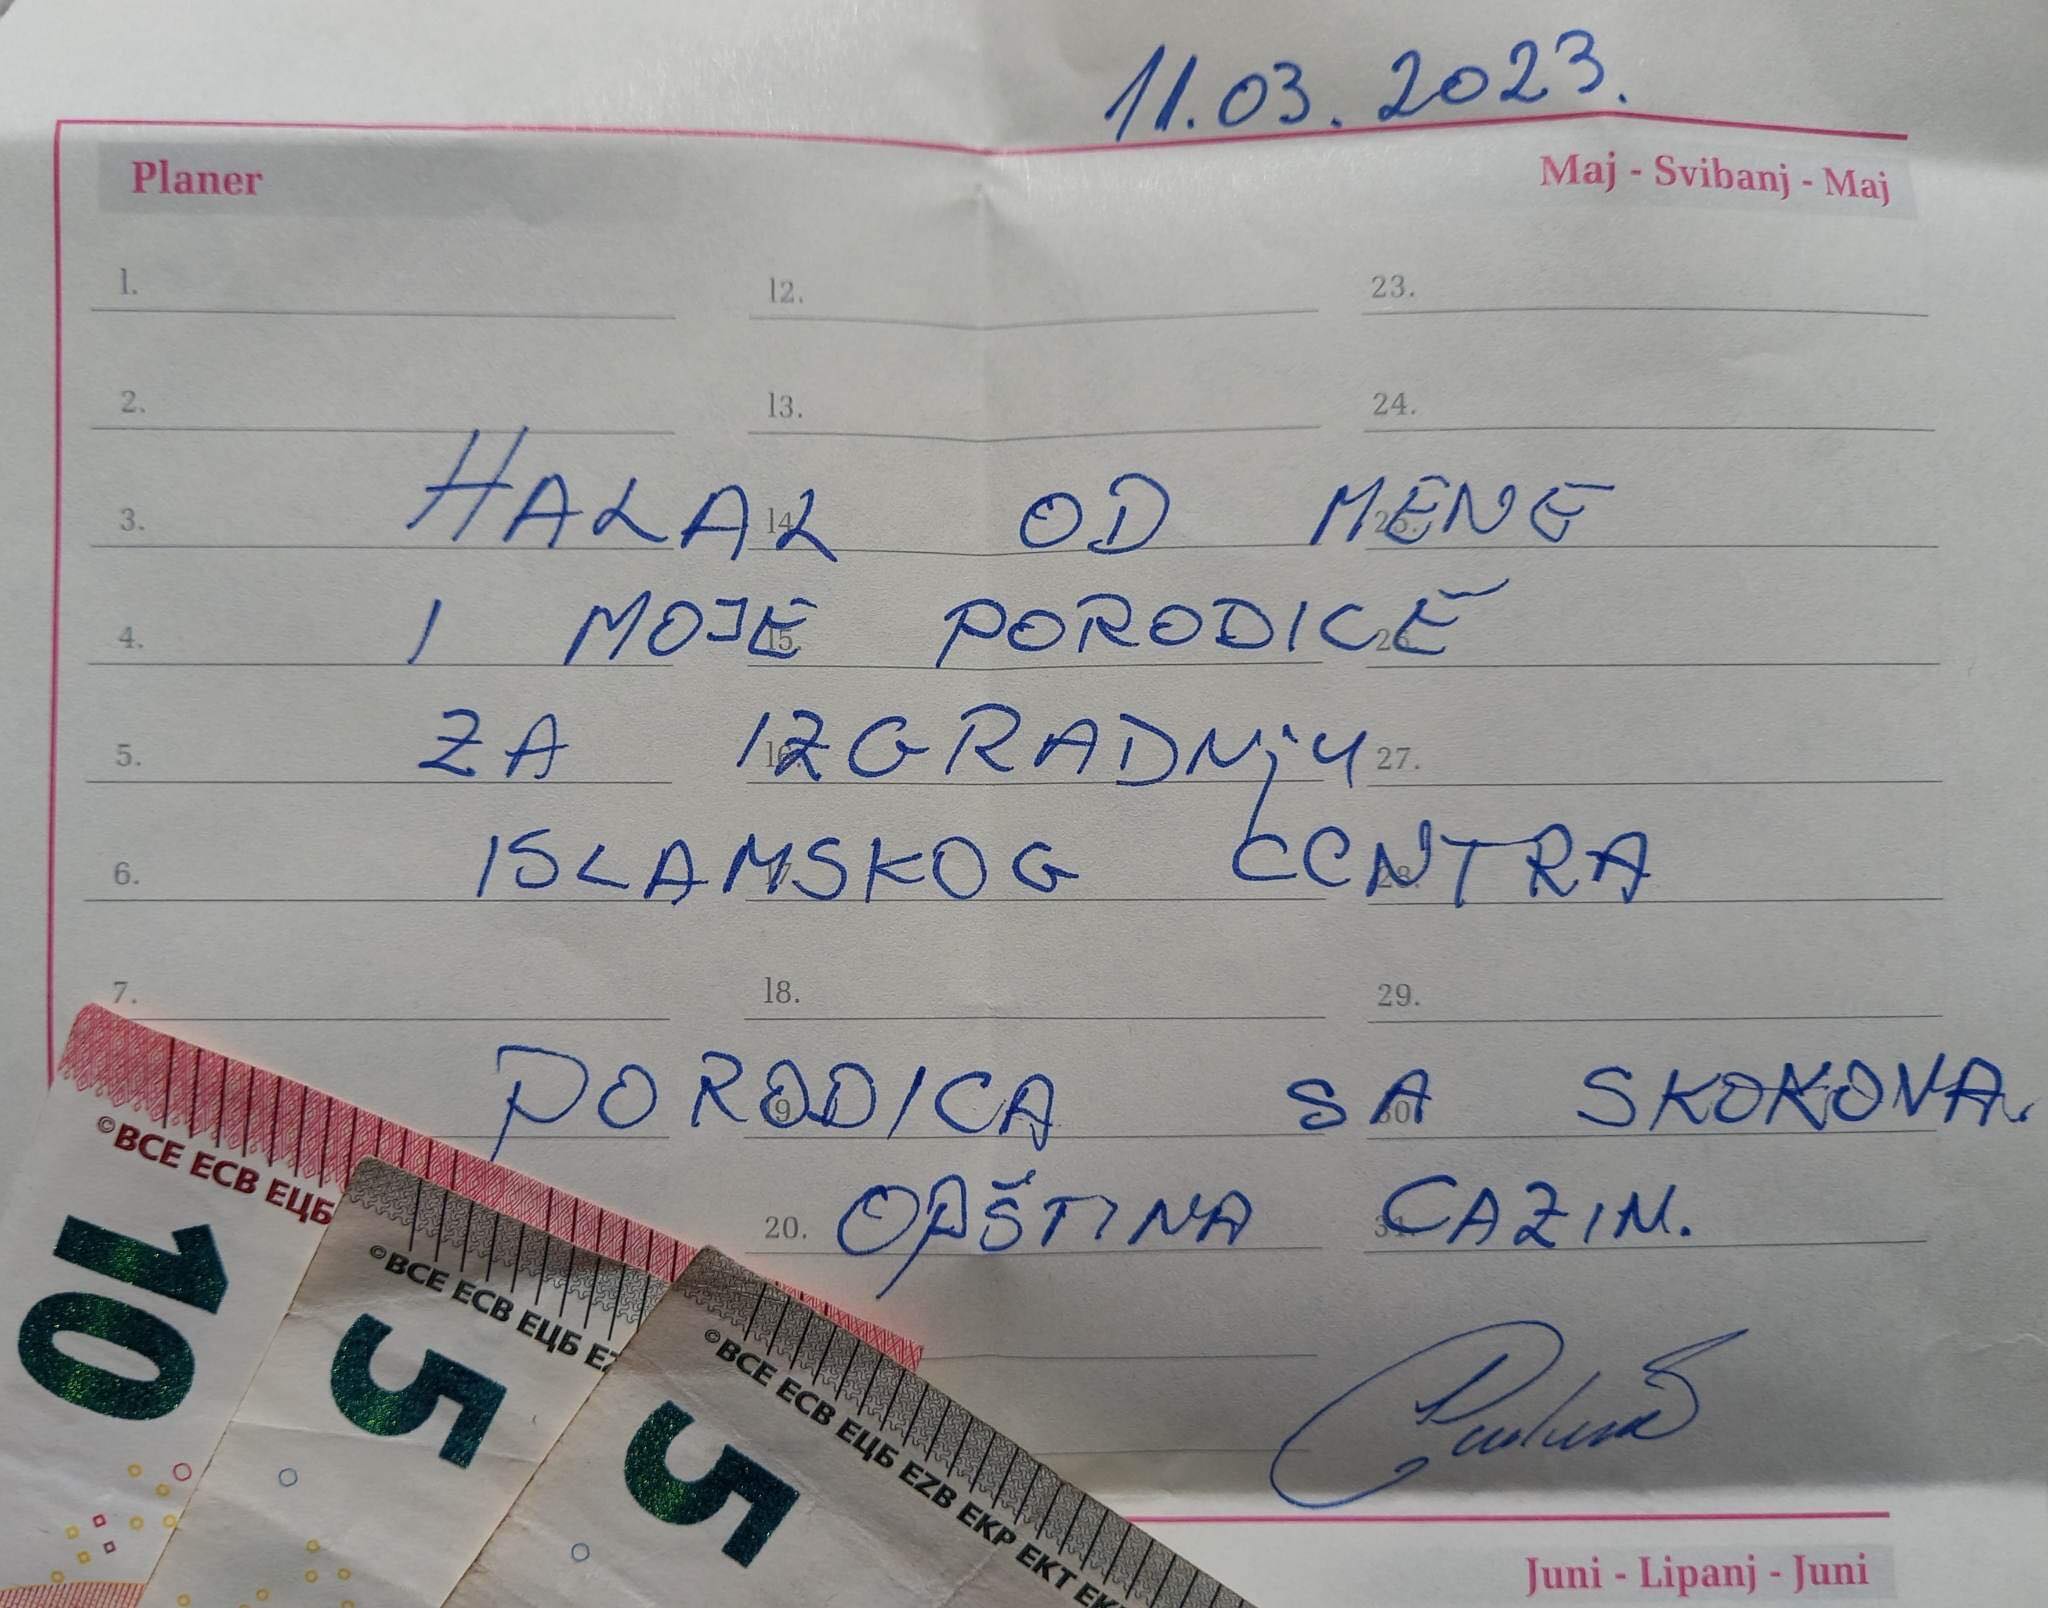 11.03.2023.
Planer
Maj - Svibanj - Maj
1. 12. 23.
2. 13. 24.
HALAL OD MENE
3. 14.
I MOJE PORODICE
4. 15. 26.
ZA IZGRADNjU
5. 16. 27.
ISLAMSKOG CENTRA
6. 17. 28.
7. 18. 29.
PORODICA SA SKOKOVA.
30.
20. OPŠTINA CAZIN.
©BCE ECB ЕЦБ
10
©BCE ECB ЕЦБ
5
©BCE ECB ЕЦБ EZB EKP EKT
5
Juni - Lipanj - Juni